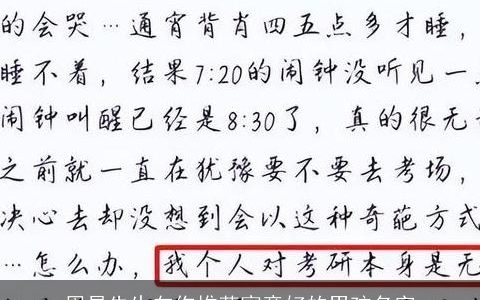 的会哭…通宵背肖四五点多才睡，
睡不着，结果7:20的闹钟没听见一
闹钟叫醒已经是8:30了，真的很无
之前就一直在犹豫要不要去考场，
决心去却没想到会以这种奇葩方式
…怎么办，我个人对考研本身是无